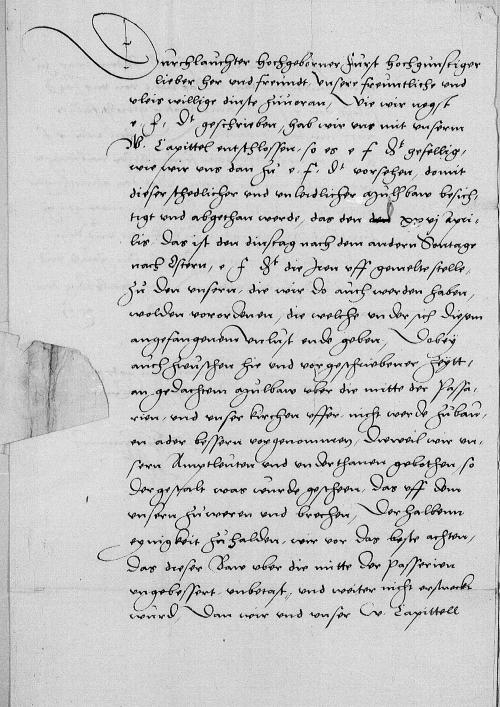 Durchlauchter hochgeborner Furst hochgunstiger
lieber her und freundt, Unsere freuntliche und
vleis willige dinste zuuoran, Wie wir negst
e. f. Dt geschrieben, hab wir uns mit unserm
W. Capittel entschlossen, so es e f Dt gefellig,
wie wir uns dan zu e. f. Dt vorsehen, domit
dieser schedlicher und unleidlicher Mulbaw besich-
tigt und abgethan werde, das den xxvj Apri-
lis, das ist den dinstag nach dem andern Sontage
nach Ostern, e f Dt die Iren uff gemelte stelle,
zu den unsern, die wir do auch werden haben,
wolden vorordenen, die welche under sich diesem
angefangenem unlust ende geben, Dobey
auch zwuschen hie und vorgeschriebener Zeytt
an gedachtem Mulbaw uber die mitte der Passa-
rien, und unser kirchen uffer, nicht werde zubau-
en ader bessern vorgenommen, Dieweil wir un-
sern Amptleuten und underthanen gebothen, so
dergestalt was wurde gescheen, das uff dem
unsern zuweren und brechen, Derhalbenn
eynigkeit zuhalden, wir vor das beste achten,
das dieser Baw uber die mitte der Passerien
ungebessert, unbetast, und weiter nicht erstreckt
wurd, Dan wir und unser W. Capittell